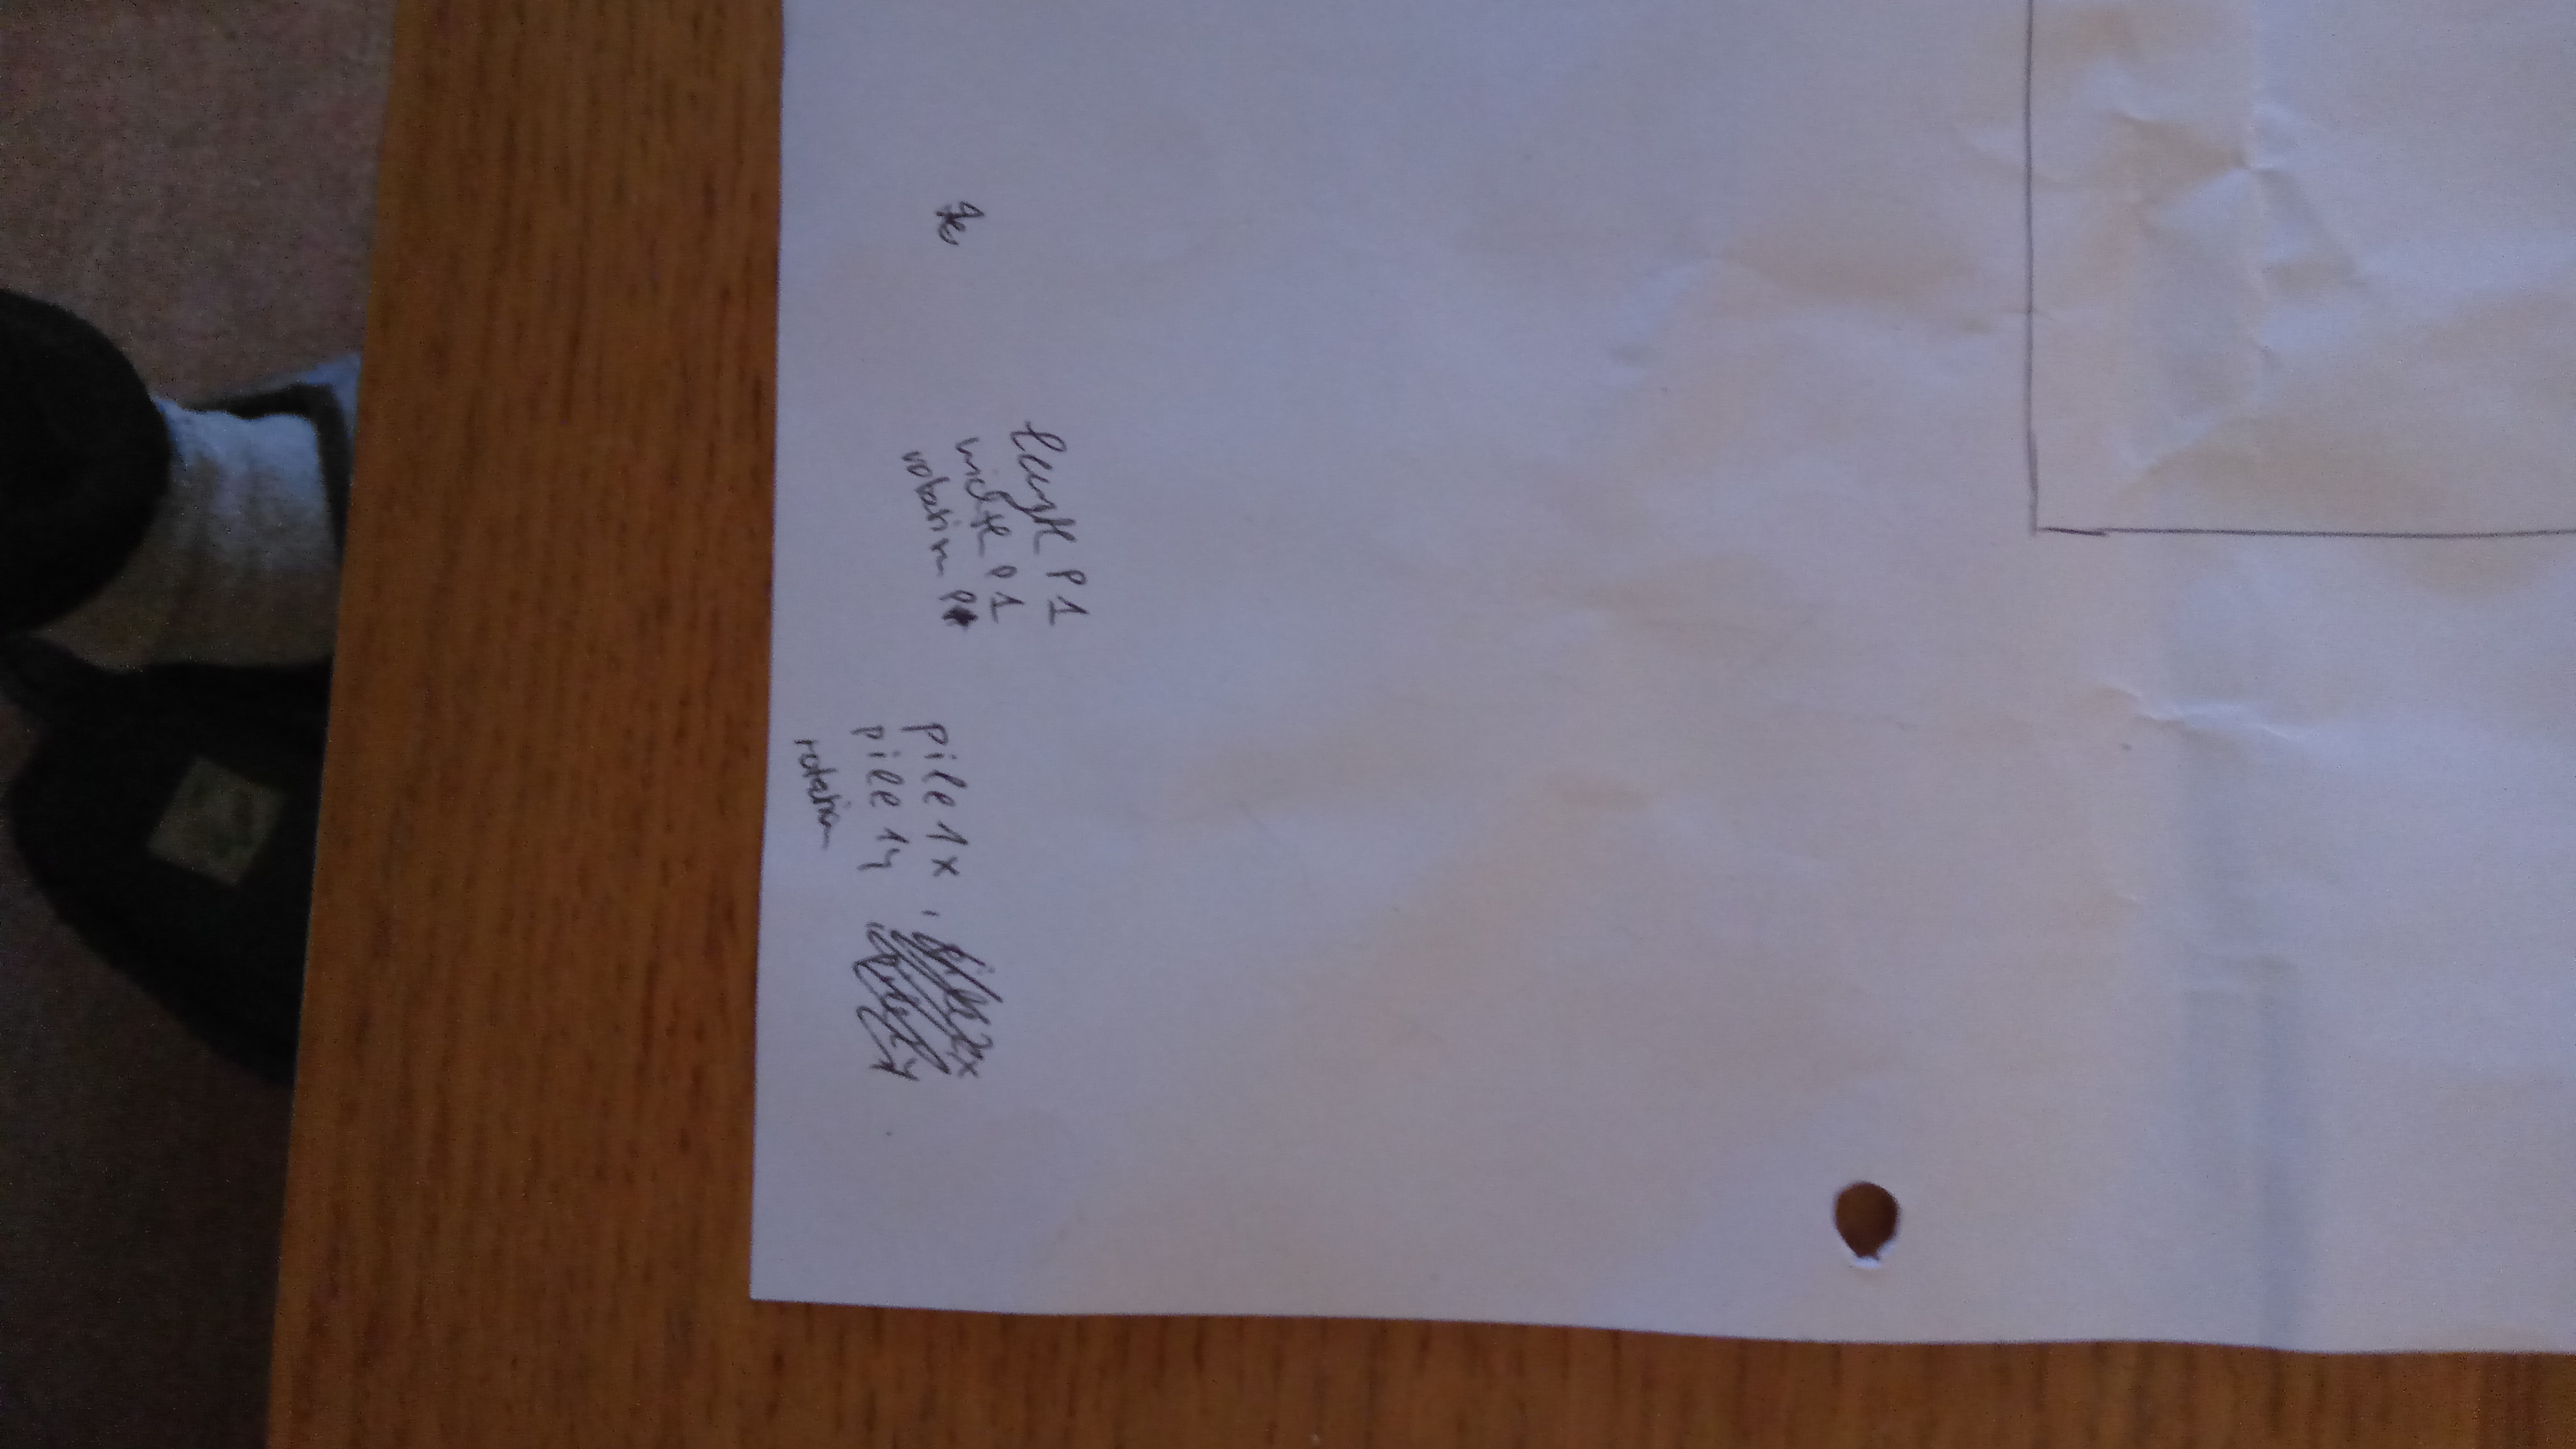 length P1
width P1
rotation P
pile 1x,
pile 1y
rotation